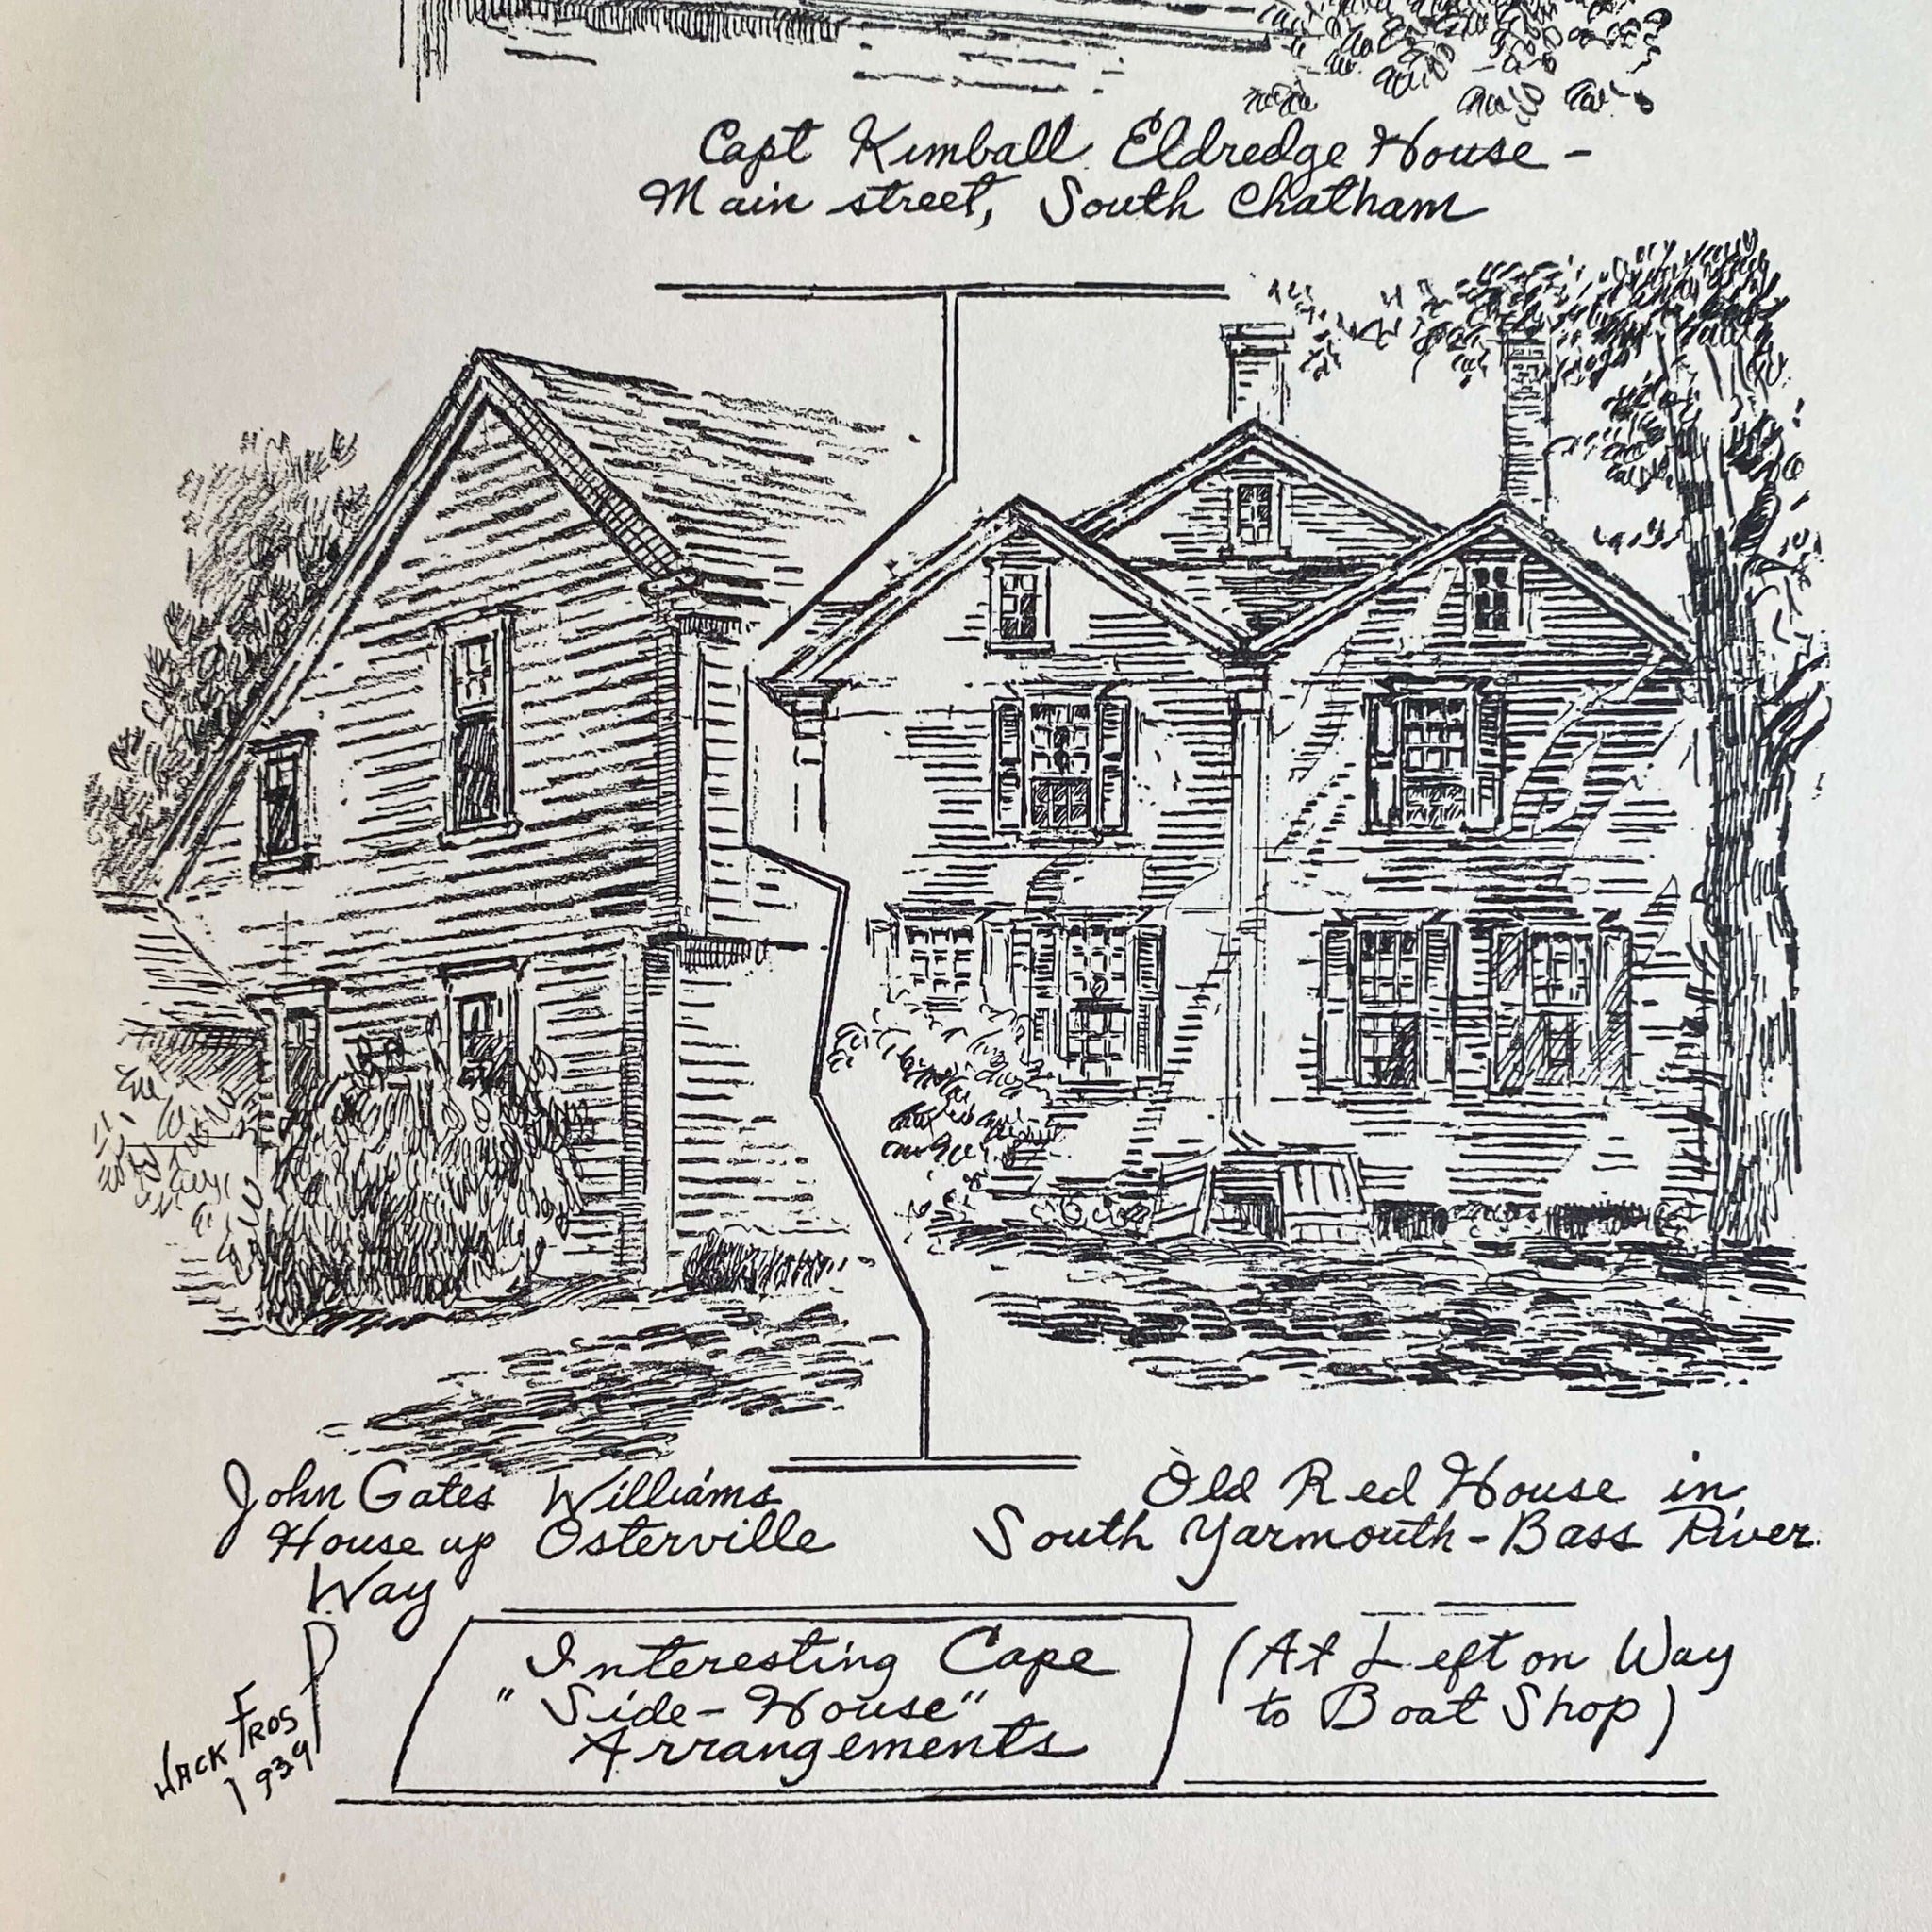 Capt Kimball Eldredge House -
Main street, South Chatham
John Gates Williams
House up Osterville
Way
Old Red House in
South Yarmouth - Bass River
"Interesting Cape
"Side-House"
Arrangements
(At Left on Way
to Boat Shop)
JACK FROST
1939